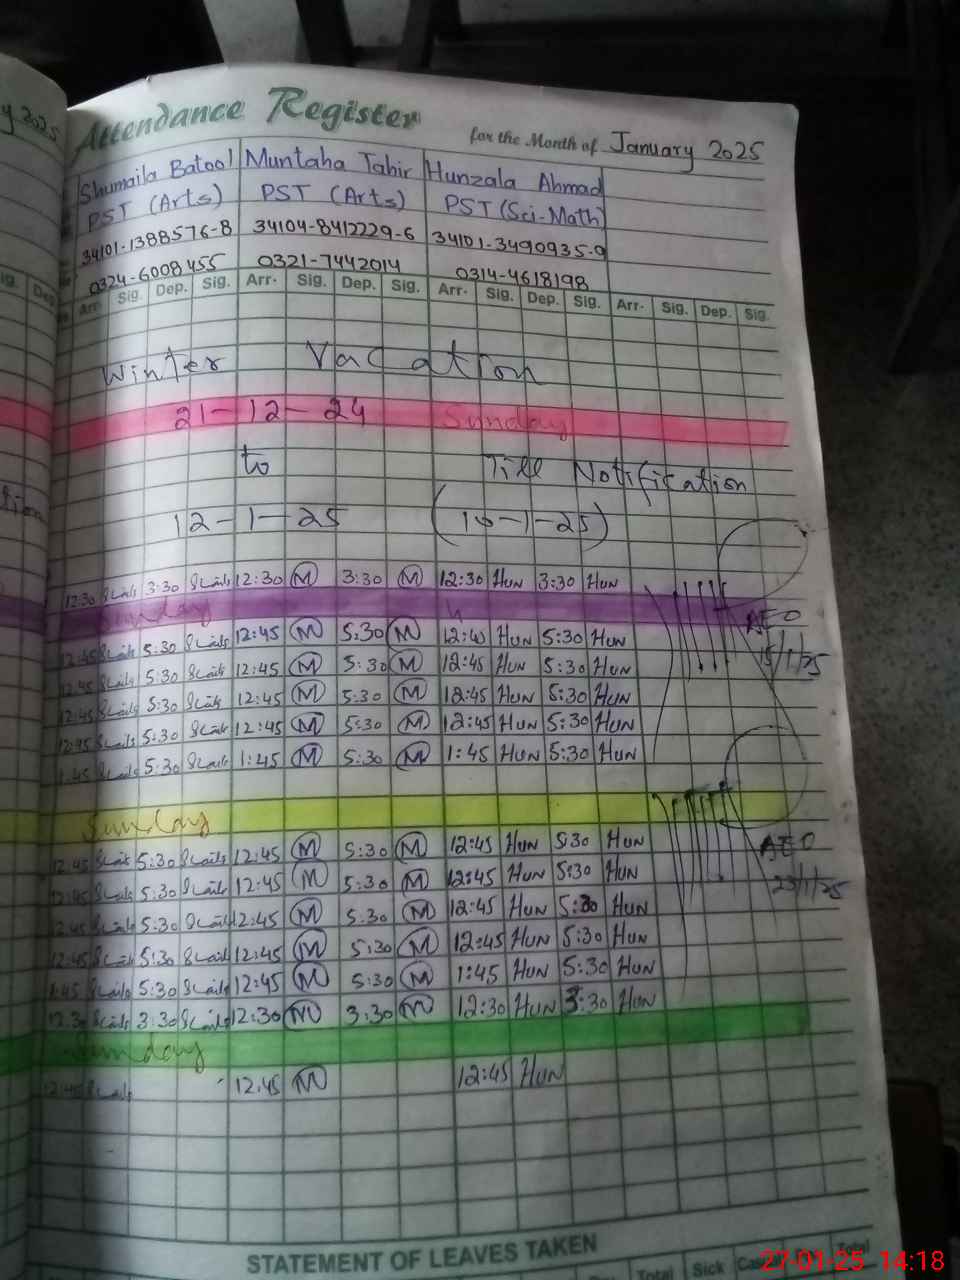 y 2025
Attendance Register for the Month of January 2025
Shumaila Batool Muntaha Tahir Hunzala Ahmad
PST (Arts) PST (Arts) PST (Sci-Math)
34101-1388576-8 34104-8412229-6 34101-3490935-9
0324-6008455 0321-7442014 0314-4618198
ig. Dep. Arr- Sig. Dep. Sig. Arr- Sig. Dep. Sig. Arr- Sig. Dep. Sig. Arr- Sig. Dep. Sig.
Winter Vacation
21-12-24 Sunday
to Till Notification
12-1-25 (10-1-25)
12:30 3:30 12:30 M 3:30 M 12:30 HUN 3:30 HUN
Sunday AEO
12:45 5:30 12:45 M 5:30 M HUN 5:30 HUN 15/1/25
12:45 5:30 12:45 M 5:30 M 12:45 HUN 5:30 HUN
12:45 5:30 12:45 M 5:30 M 12:45 HUN 5:30 HUN
12:45 5:30 12:45 M 5:30 M 12:45 HUN 5:30 HUN
1:45 5:30 1:45 M 5:30 M 1:45 HUN 5:30 HUN
Sunday
12:45 5:30 12:45 M 5:30 M 12:45 HUN 5:30 HUN AEO
12:45 5:30 12:45 M 5:30 M 12:45 HUN 5:30 HUN 23/1/25
12:45 5:30 12:45 M 5:30 M 12:45 HUN 5:30 HUN
12:45 5:30 12:45 M 5:30 M 12:45 HUN 5:30 HUN
1:45 5:30 12:45 M 5:30 M 1:45 HUN 5:30 HUN
12:30 3:30 12:30 M 3:30 M 12:30 HUN 3:30 HUN
Sunday
12:45 12:45 M 12:45 HUN
STATEMENT OF LEAVES TAKEN
Total Sick Total
27-01-25 14:18